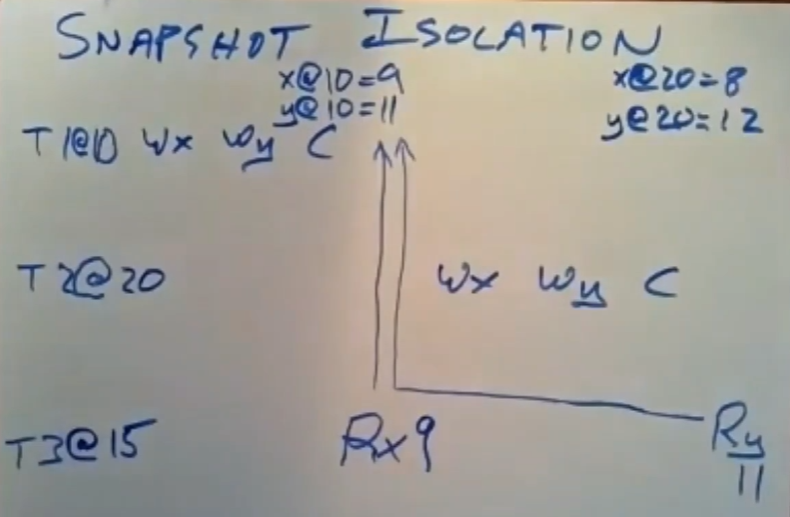 SNAPSHOT ISOLATION
x@10=9 x@20=8
y@10=11 y@20=12
T1@10 Wx Wy C
T2@20 Wx Wy C
T3@15 Rx9 Ry
11